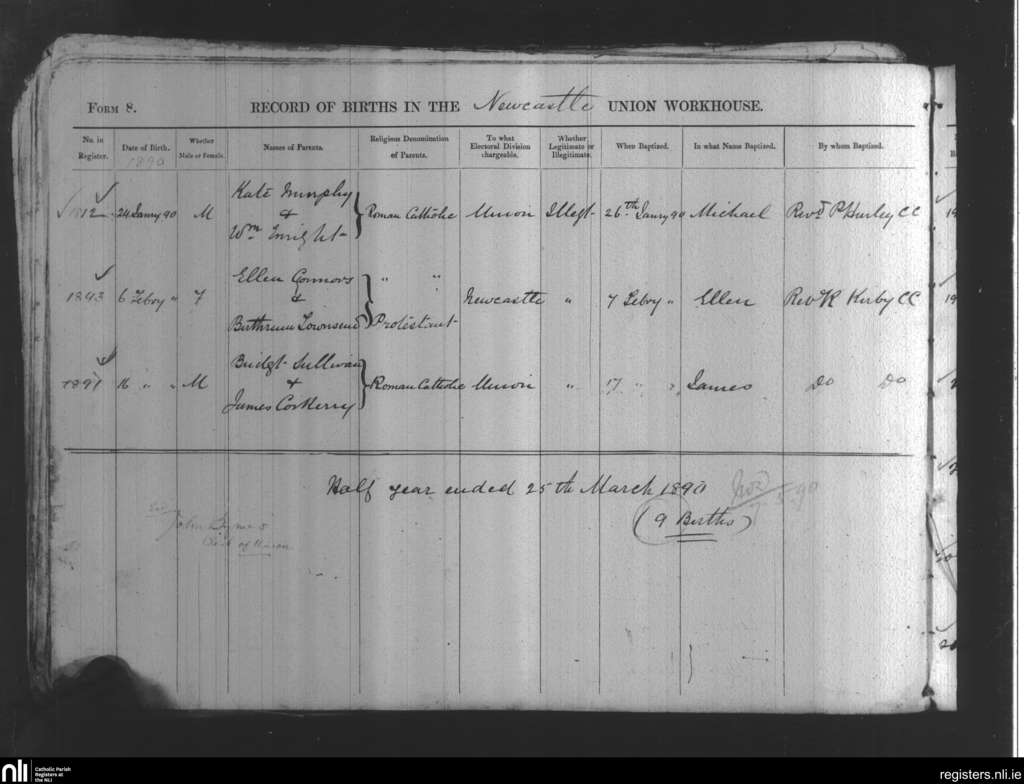 FORM 8. RECORD OF BIRTHS IN THE Newcastle UNION WORKHOUSE.
No. in Register. Date of Birth. Whether Male or Female. Names of Parents. Religious Denomination of Parents. To what Electoral Division chargeable. Whether Legitimate or Illegitimate. When Baptized. In what Name Baptized. By whom Baptized.
1890
Kate Murphy
1812 24 Janry 90 M & } Roman Catholic Union Illegt. 26th Janry 90 Michael Revd P Hurley CC
Wm Enright
Ellen Connors " "
1843 6 Febry " F & } Newcastle " 7 Febry " Ellen Revd R Kirby CC
Townsend Protestant
Bridgt Sullivan
1891 16 " " M & } Roman Catholic Union " 17 " " James Do Do
James Corkerry
Half year ended 25th March 1890
(9 Births)
John
Clerk of Union
nli Catholic Parish Registers at the NLI
registers.nli.ie